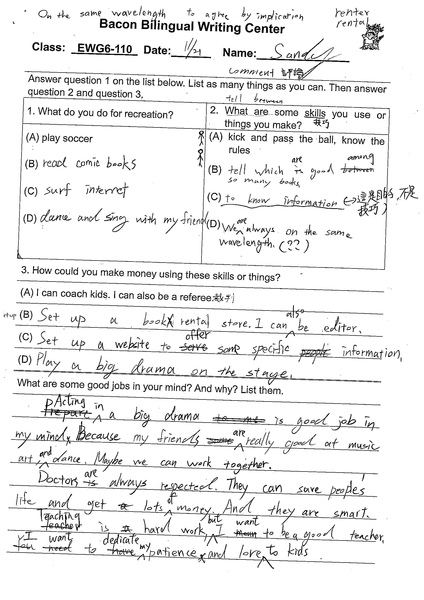 On the same wavelength to agree by implication
renter
rental
Bacon Bilingual Writing Center
Class: EWG6-110 Date: 11/21 Name: Sandy
comment 評論
Answer question 1 on the list below. List as many things as you can. Then answer question 2 and question 3.
tell between
1. What do you do for recreation?
(A) play soccer
(B) read comic books
(C) surf internet
(D) dance and sing with my friend
2. What are some skills you use or things you make? 技巧
(A) kick and pass the ball, know the rules
(B) tell which is are good between among so many books
(C) to know information (→這是目的,不是技巧)
(D) We are always on the same wavelength. (??)
3. How could you make money using these skills or things?
(A) I can coach kids. I can also be a referee.裁判
(B) Set up a book rental store. I can also be editor.
(C) Set up a website to offer some specific people information.
(D) Play a big drama on the stage.
What are some good jobs in your mind? And why? List them.
Prepare Acting in a big drama is good job in
my mind, Because my friends are really good at music
art and dance. Maybe we can work together.
Doctors is are always respected. They can save peoples
life and get a lots of money. And they are smart.
Teacher Teaching is a hard work, but I want to be a good teacher.
You need I want to have dedicate my patience and love to kids.